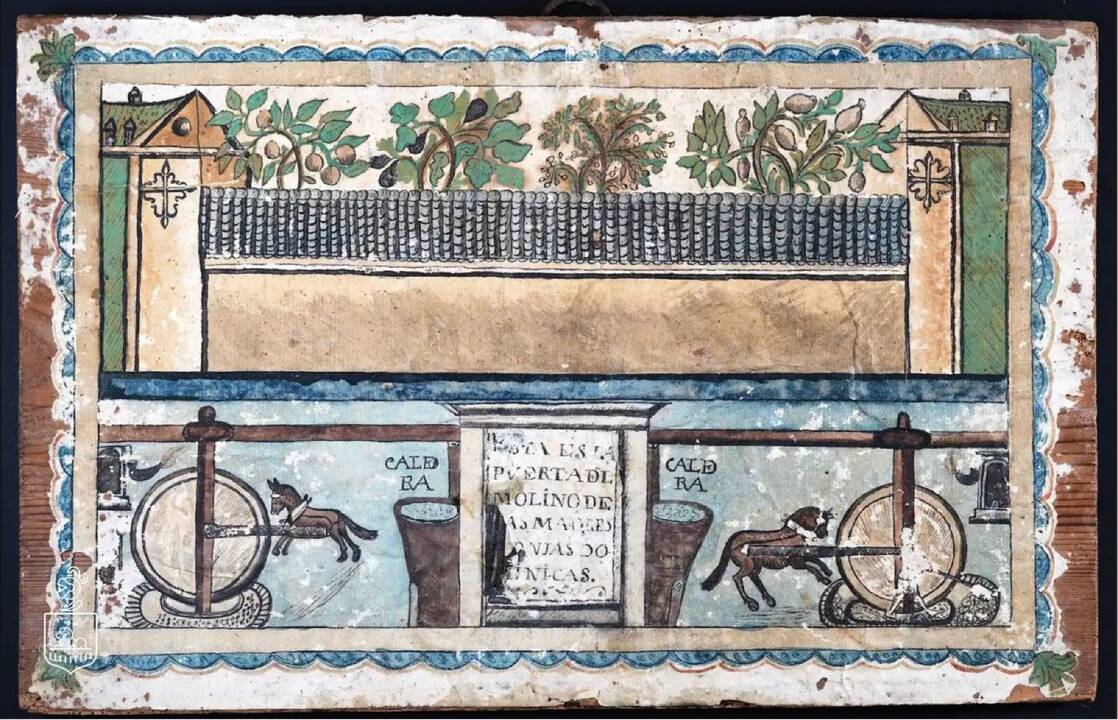 CALDE
RA
ESTA ES LA
PVERTA DL
MOLINO DE
LAS MADRES
MONJAS DO
MINICAS.
CALDE
RA